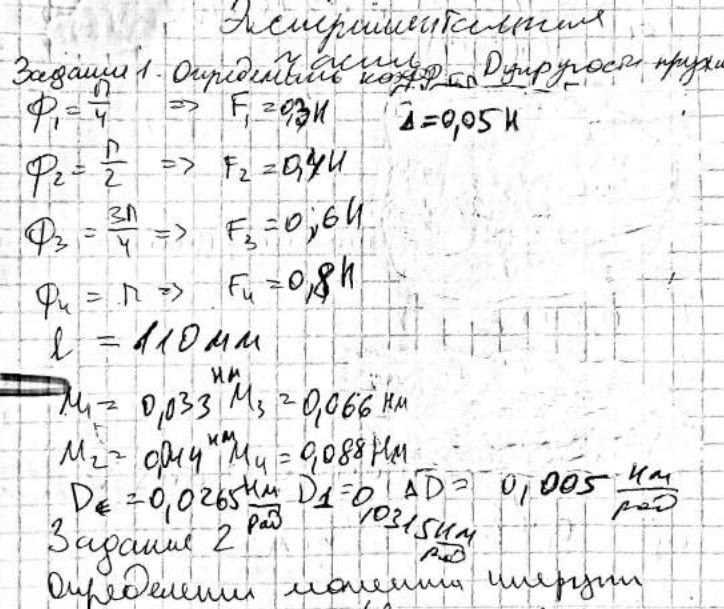 Экспериментальная
часть
Задание 1. Определить коэф. D упругости
φ₁ = П/4 => F₁ = 0,3 Н Δ = 0,05 Н
φ₂ = П/2 => F₂ = 0,4 Н
φ₃ = 3П/4 => F₃ = 0,6 Н
φ₄ = П => F₄ = 0,8 Н
l = 110 мм
M₁ = 0,033 Нм M₃ = 0,066 Нм
M₂ = 0,044 Нм M₄ = 0,088 Нм
= 0,0265 Нм/рад D1 = 0,0315 Нм/рад ΔD = 0,005 Нм/рад
Задание 2
Определении момента инерции